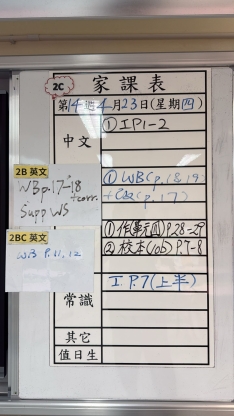 2C
家課表
第14週4月23日(星期四)
中文
① IP1-2
2B 英文
WB p.17-18
+corr.
Supp WS
① WB(p.18,19)
(p.17)
2BC 英文
WB P.11,12
P.28-29
② 校本(job) P.7-8
常識
I P.7(上半)
其它
值日生